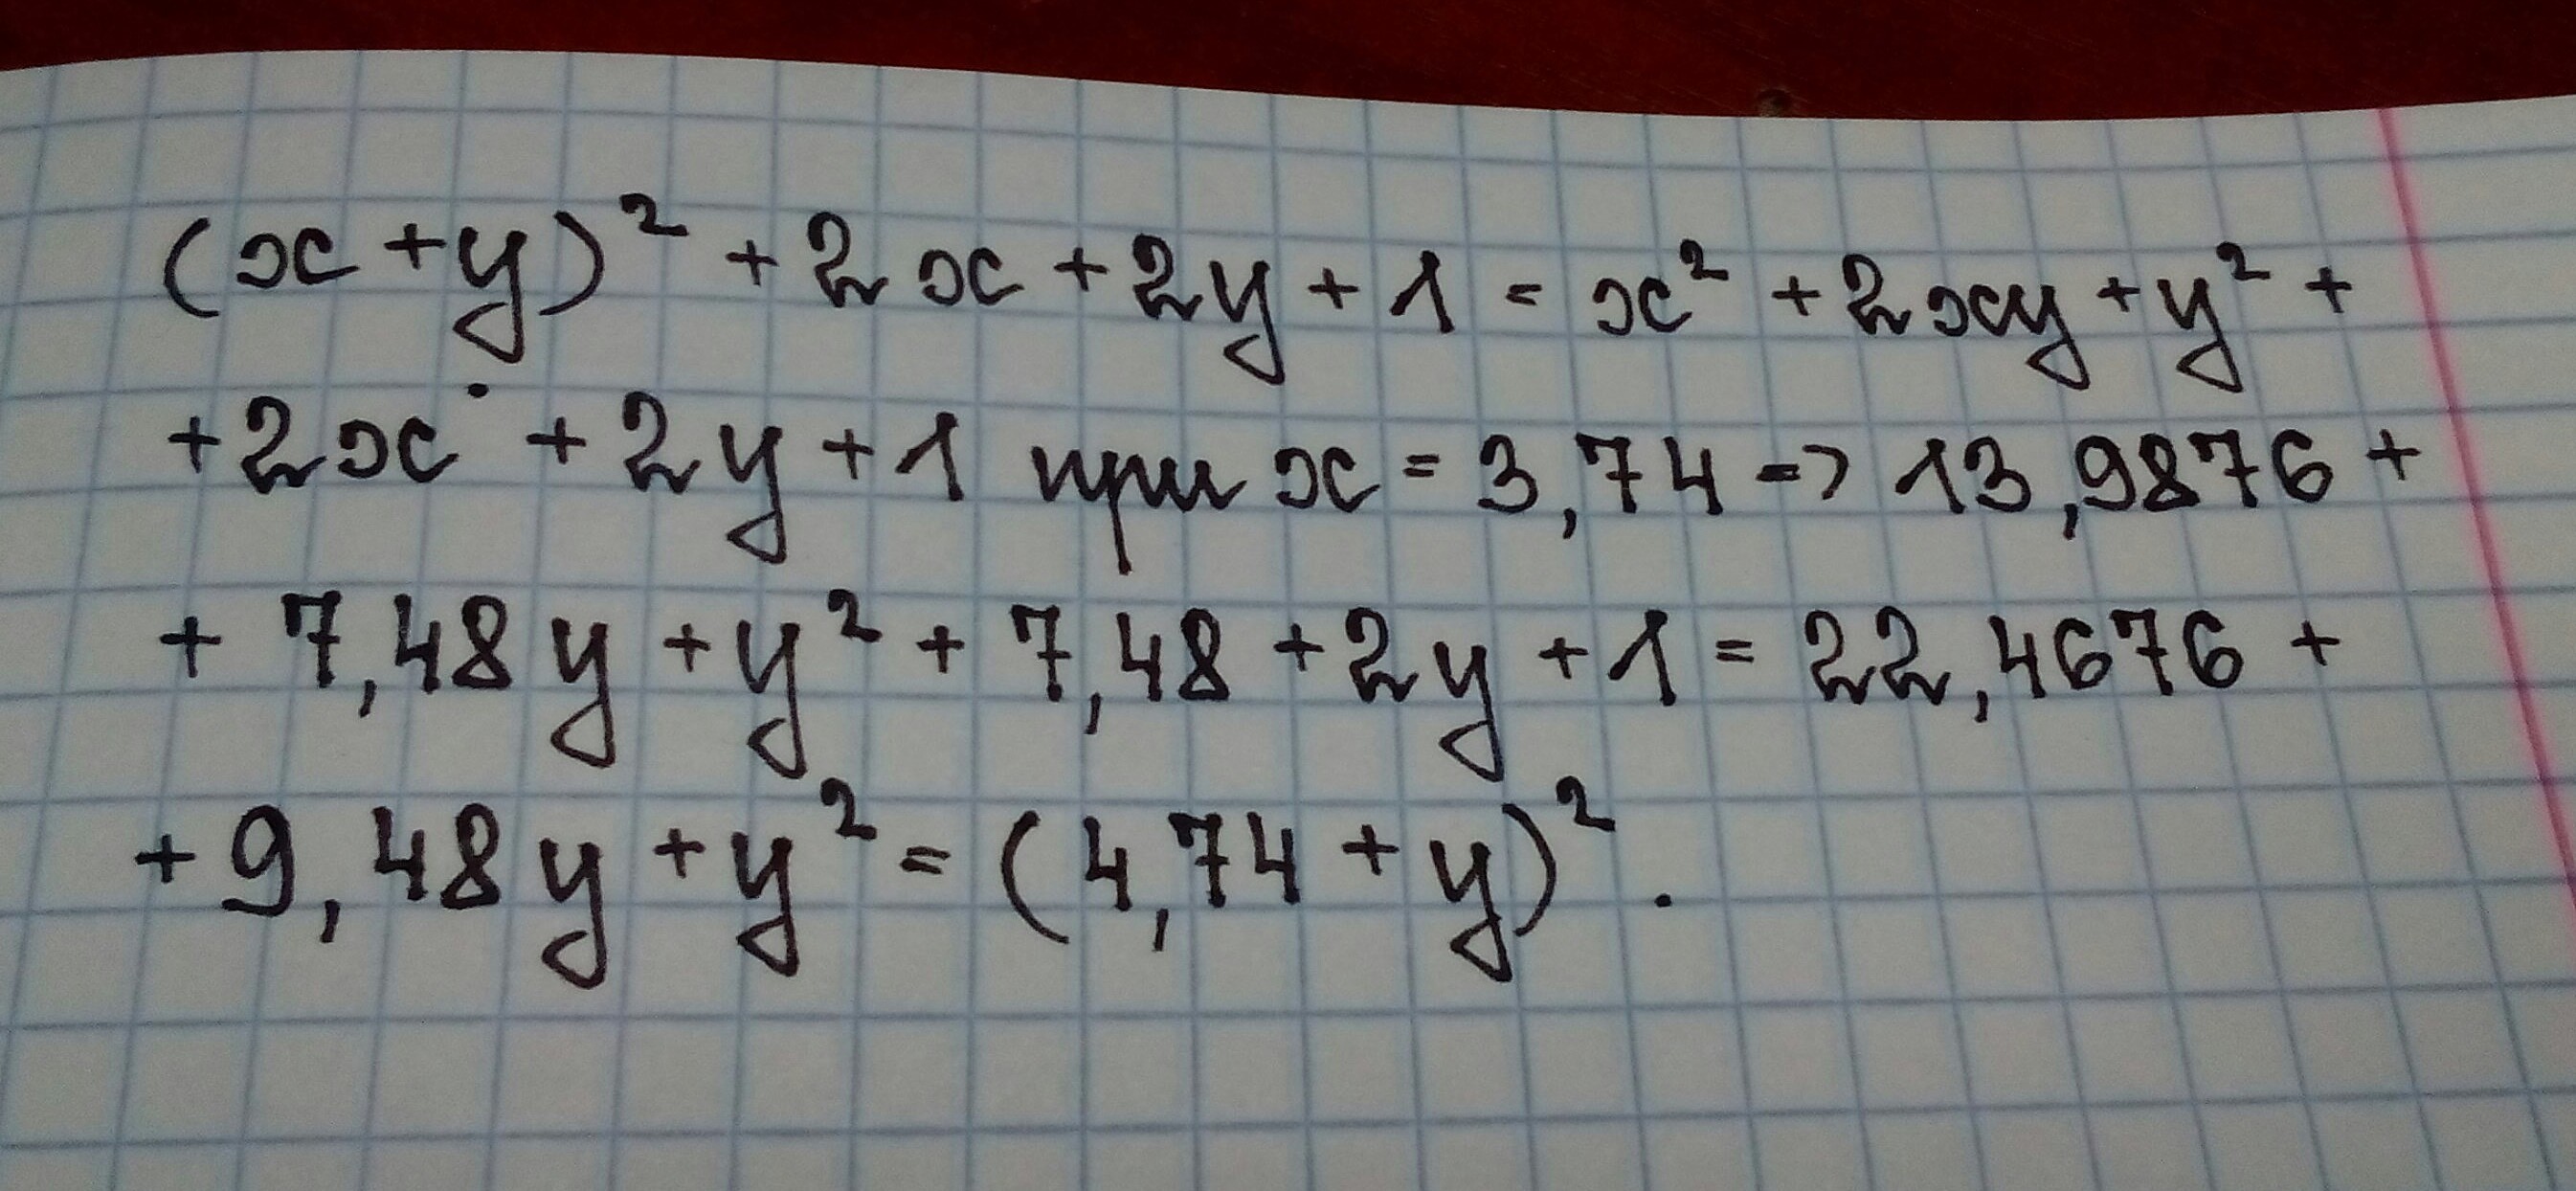 (x+y)² + 2x + 2y + 1 = x² + 2xy + y² +
+ 2x + 2y + 1 при x = 3,74 => 13,9876 +
+ 7,48y + y² + 7,48 + 2y + 1 = 22,4676 +
+ 9,48y + y² = (4,74 + y)².